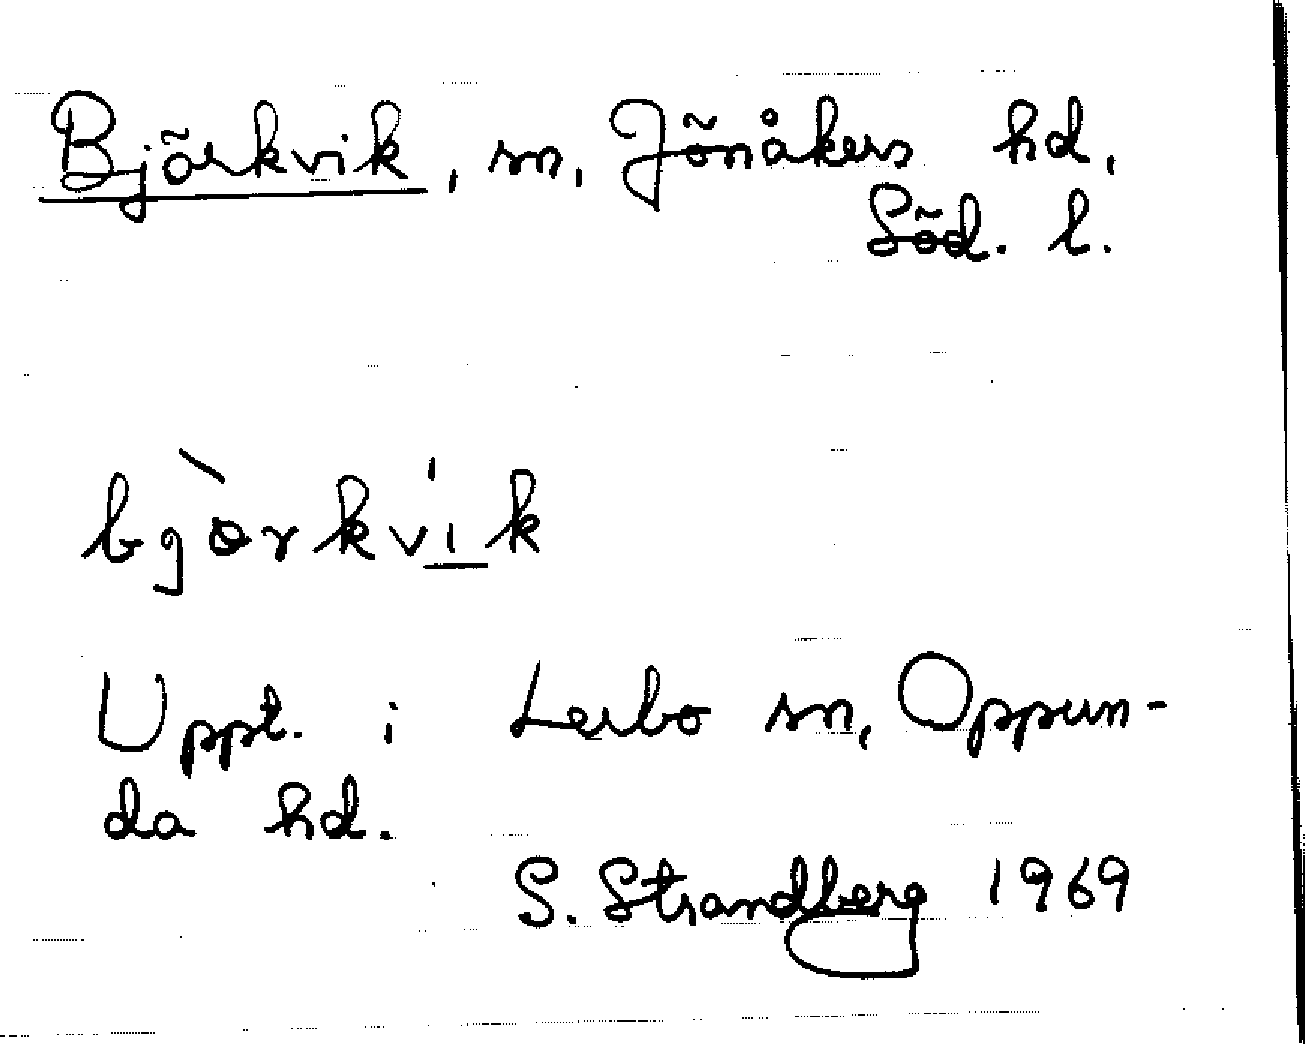 Björkvik, sn, Jönåkers hd,
Söd. l.
bjòrkvi̱k
Uppt. i Lerbo sn, Oppun-
da hd.
S. Strandberg 1969